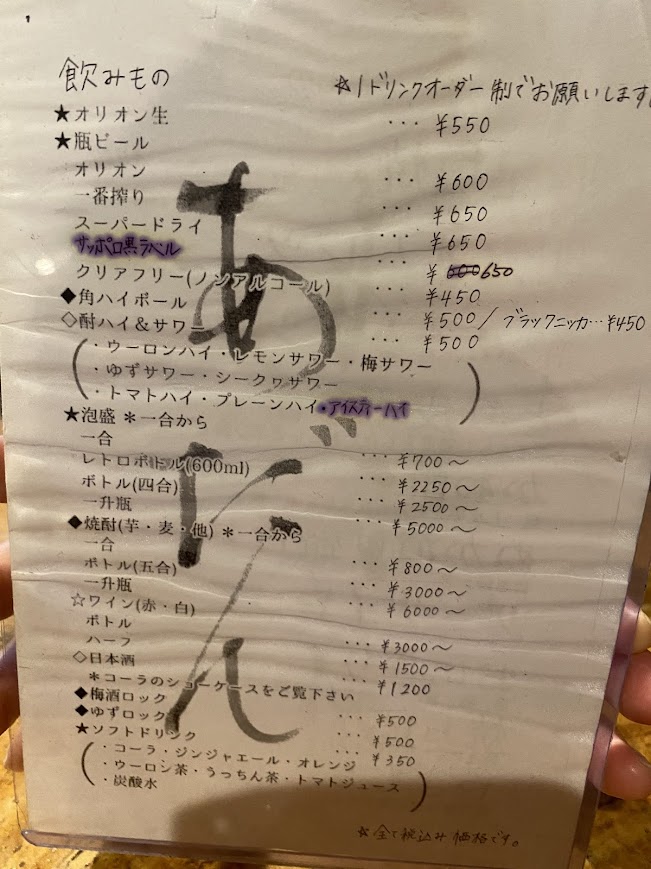 飲みもの
☆1ドリンクオーダー制でお願いします。
★オリオン生 … ¥550
★瓶ビール
オリオン … ¥600
一番搾り … ¥650
スーパードライ … ¥650
サッポロ黒ラベル … ¥600 650
クリアフリー(ノンアルコール) … ¥450
◆角ハイボール … ¥500/ブラックニッカ…¥450
◇酎ハイ&サワー … ¥500
(・ウーロンハイ・レモンサワー・梅サワー
・ゆずサワー・シークヮサワー
・トマトハイ・プレーンハイ・アイスティーハイ)
★泡盛 *一合から
一合 … ¥700~
レトロボトル(600ml) … ¥2250~
ボトル(四合) … ¥2500~
一升瓶 … ¥5000~
◆焼酎(芋・麦・他) *一合から
一合 … ¥800~
ボトル(五合) … ¥3000~
一升瓶 … ¥6000~
☆ワイン(赤・白)
ボトル … ¥3000~
ハーフ … ¥1500~
◇日本酒 … ¥1200
*コーラのショーケースをご覧下さい
◆梅酒ロック … ¥500
◆ゆずロック … ¥500
★ソフトドリンク … ¥350
(・コーラ・ジンジャエール・オレンジ
・ウーロン茶・うっちん茶・トマトジュース
・炭酸水)
☆全て税込み価格です。
あだん